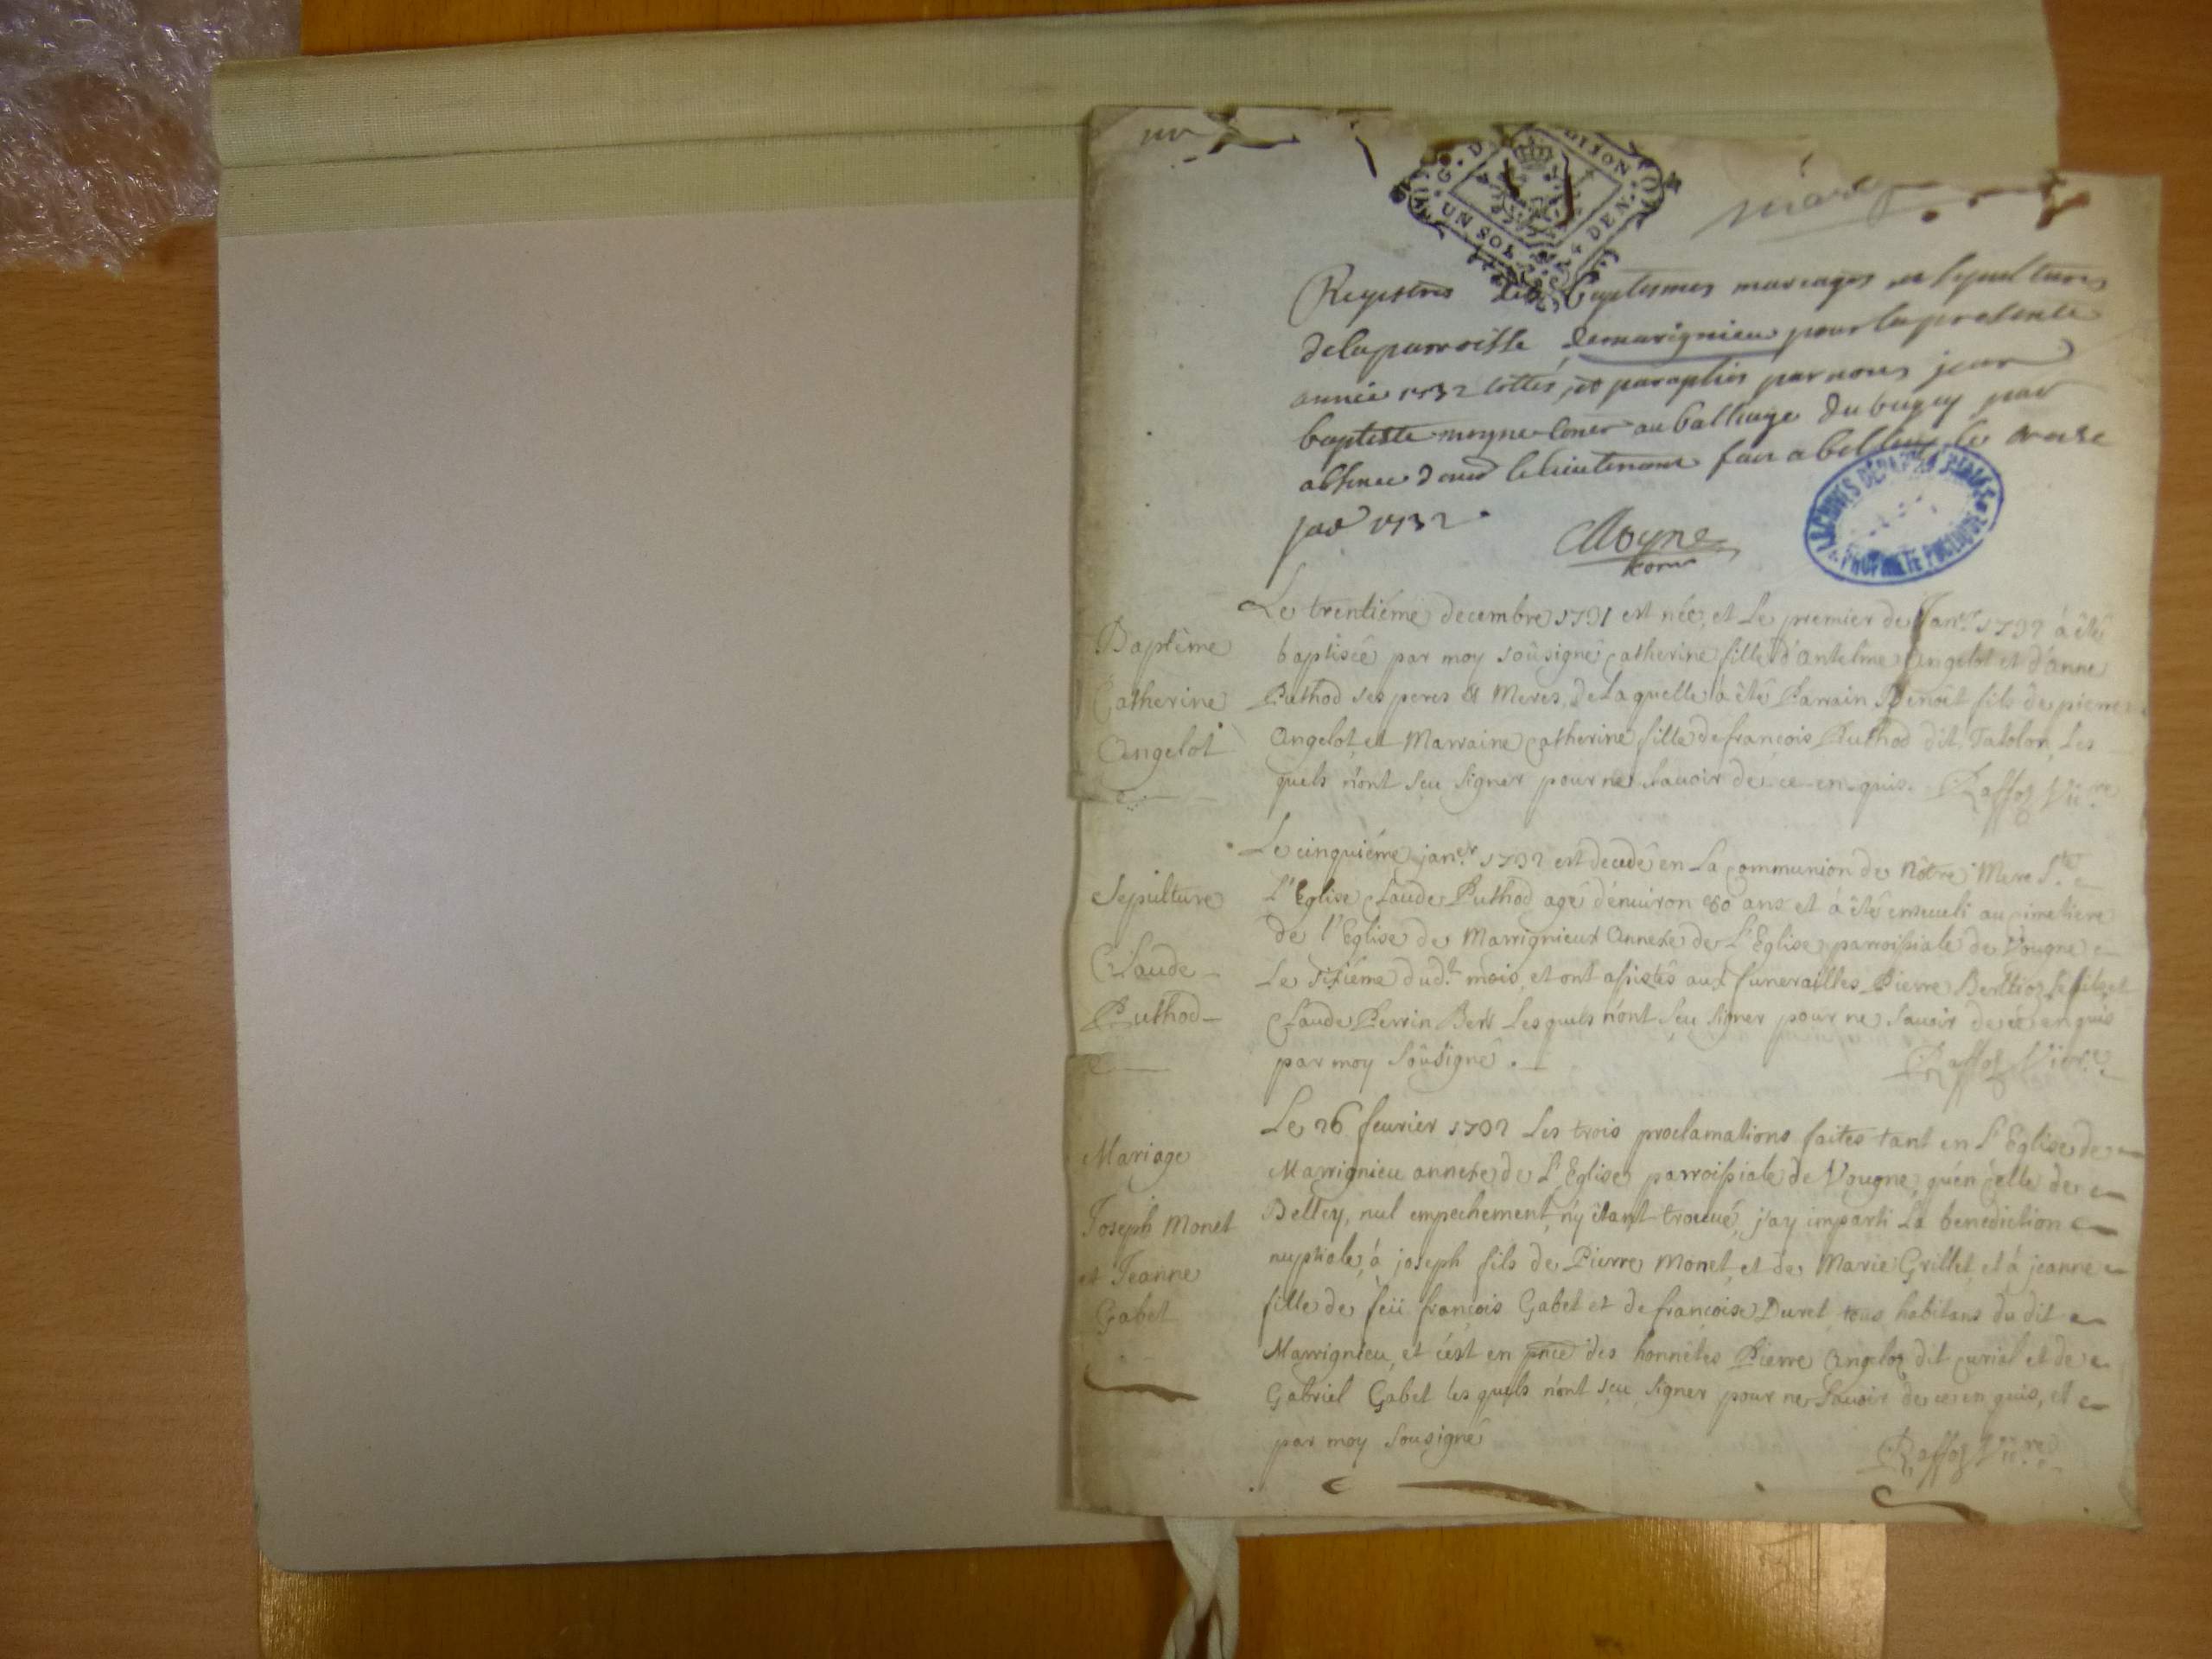 G. D DIJON
UN SOL 4 DEN.
Registres des baptesmes mariages et sepultures
de la parroisse de marignieu pour la presente
année 1732 cottés, et paraphés par nous jean
baptiste moyne coner au balliage du bugey par
absence de mr le lieutenant fait a belley le
janv 1732.
Moyne
ARCHIVES DÉPART. DE L'AIN
PROPRIÉTÉ PUBLIQUE
Baptême
Catherine
Angelot
Le trentiéme decembre 1731 est née, et Le premier de Janr. 1732 à êté
baptisée par moy soûsigné Catherine fille d'Antelme Angelot et d'Anne
Puthod ses peres et Meres, de Laquelle à êté Parrain Benoît fils de pierre
Angelot, et Marraine Catherine fille de françois Puthod dit Tatolon, Les
quels n'ont seu signer pour ne savoir de ce en-quis. Raffoz Viire.
Sepulture
Claude
Puthod
Le cinquiéme janer. 1732 est decedé en La Communion de Nôtre Mere Ste.
L'Eglise Claude Puthod agé d'enuiron 80 ans et à êté enseueli au cimetiere
de l'Eglise de Marrignieux Annexe de L'Eglise parroissiale de Vougne
Le sixiéme dudt. mois, et ont assistés aux funerailles Pierre Berthoz le fils et
Claude Perrin Bert Lesquels n'ont seu signer pour ne savoir de ce enquis
par moy soûsigné. Raffoz Viire.
Mariage
Joseph Monet
et Jeanne
Gabet
Le 26 feurier 1732 Les trois proclamations faites tant en L'Eglise de
Marrignieu annexe de L'Eglise parroissiale de Vougne, qu'en celle de
Belley, nul empechement n'y êtant trouué, j'ay imparti La benediction
nuptiale, à joseph fils de Pierre Monet, et de Marie Grillet, et à jeanne
fille de feü françois Gabet et de françoise Duret tous habitans du dit
Marrignieu, et c'est en pnce des honnêtes Pierre Angeloz dit curial et de
Gabriel Gabet lesquels n'ont seu signer pour ne savoir de ce en quis, et
par moy sousigné
Raffoz Viire.